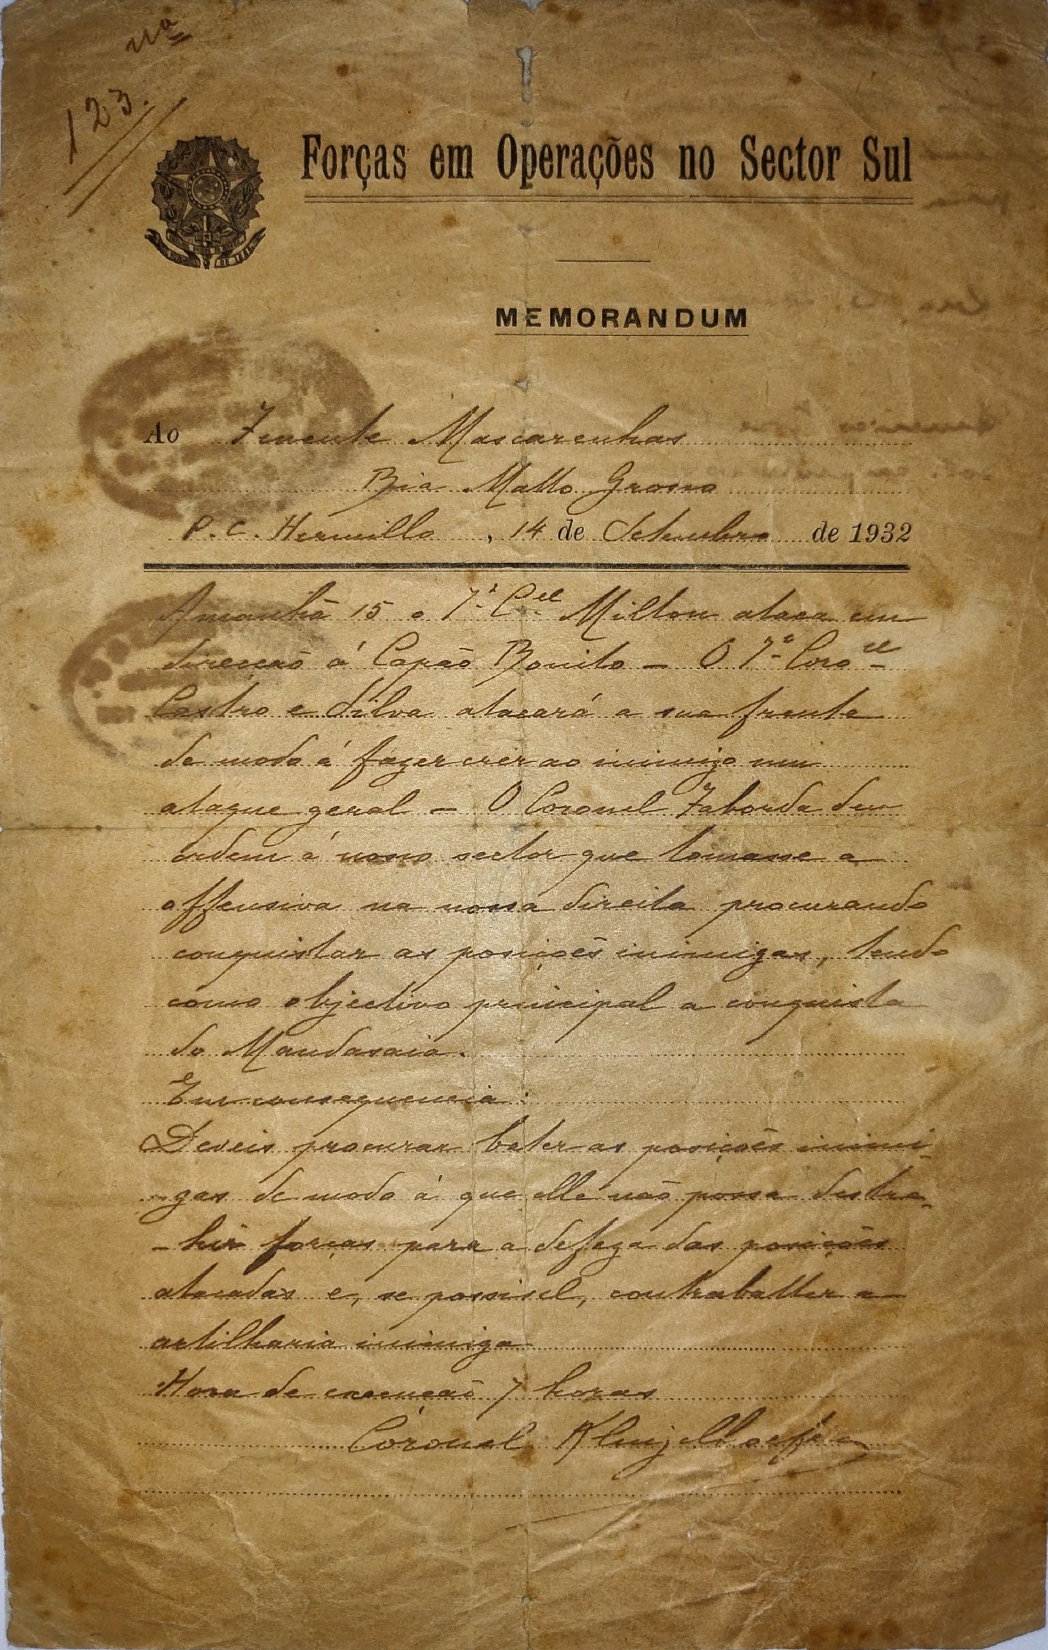 nº
123.
Forças em Operações no Sector Sul
MEMORANDUM
Ao Tenente Mascarenhas
Bia Matto Grosso
P. C. Hermillo, 14 de Setembro de 1932
Amanhã 15 o T.te C.el Milton ataca em
direcção á Capão Bonito — O T.te Coro.el
Castro e Silva atacará a sua frente
de modo á fazer crer ao inimigo um
ataque geral — O Coronel Taborda deu
ordem á nosso sector que tomasse a
offensiva na nossa direita procurando
conquistar as posições inimigas, tendo
como objectivo principal a conquista
do Mandasaia.
Em consequencia:
Deveis procurar bater as posições inimi-
gas de modo á que elle não possa distra-
-hir forças para a defeza das posições
atacadas e, se possivel, contrabatter a
artilharia inimiga
Hora de execução 7 horas
Coronel Klingelhoefer